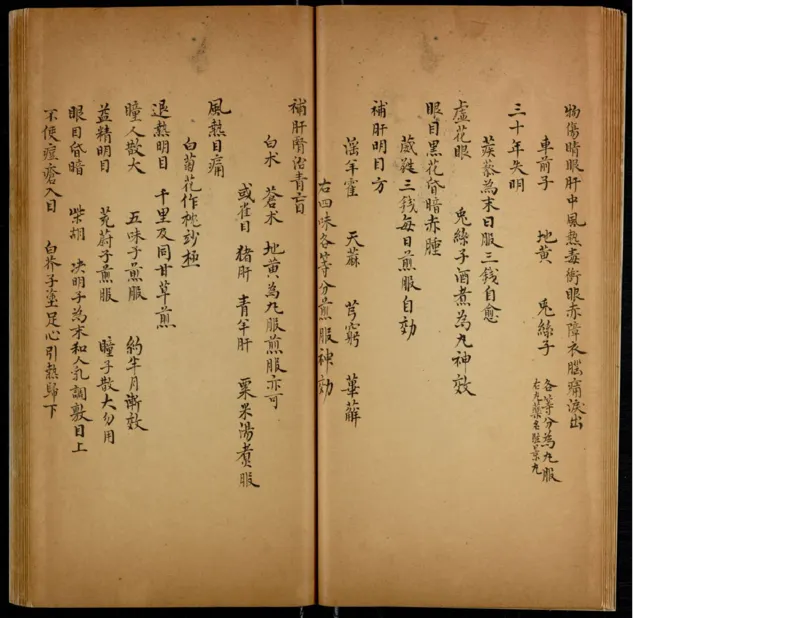 物傷睛眼肝中風熱毒衝眼赤障衣腦痛淚出
車前子 地黃 兎絲子 各等分為九服
右九藥名駐景九
三十年失明
蒺藜為末日服三錢自愈
虛花眼 兎絲子酒煮為九神效
眼目黑花昏暗赤腫
葳蕤三錢每日煎服自効
補肝明目方
淫羊藿 天蔴 芎藭 萆薢
右四味各等分煎服神効
補肝腎治青盲
白朮 蒼朮 地黃為九服煎服亦可
或雀目 猪肝 青羊肝 粟米湯煮服
風熱目痛
白菊花作枕妙極
退熱明目 千里及同甘草煎
瞳人散大 五味子煎服 約半月漸效
益精明目 茺蔚子煎服 瞳子散大勿用
眼目昏暗 柴胡 決明子為末和人乳調敷目上
不使痘瘡入目 白芥子塗足心引熱歸下